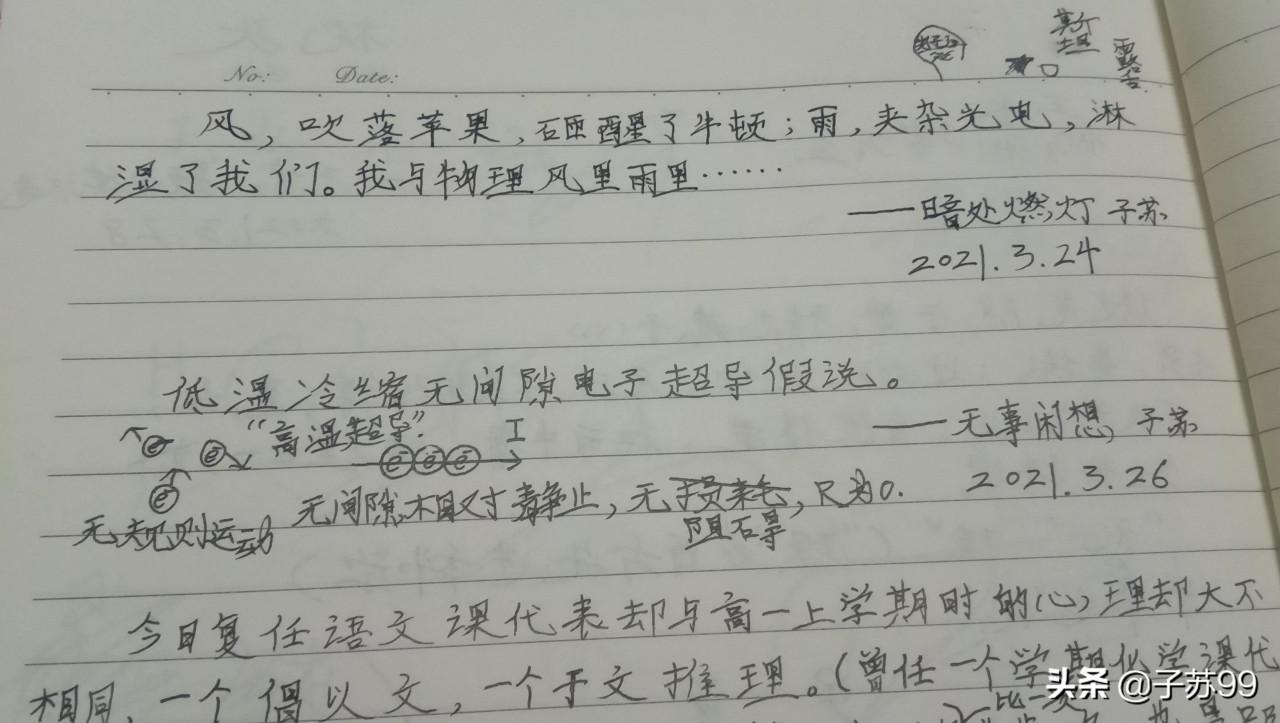 斯
坦
露
No: Date:
风，吹落苹果，砸醒了牛顿；雨，夹杂光电，淋
湿了我们。我与物理风里雨里……
——暗处燃灯 子苏
2021.3.24
低温冷缩无间隙电子超导假说。
"高温超导"
I
——无事闲想，子苏
2021.3.26
e e e e e e
无规则运动
无间隙，相对静止，无损耗，R为0.
阻碍
今日复任语文课代表却与高一上学期时的心理却大不
相同，一个倡以文，一个于文推理。（曾任一个学期化学课代
头条 @子苏99